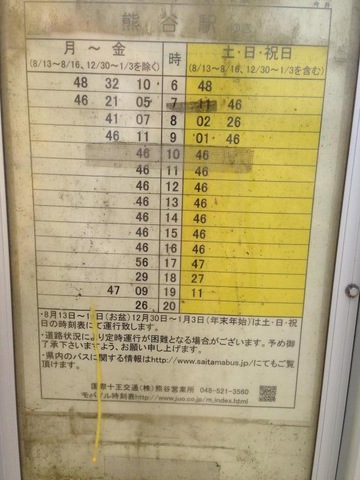 熊谷
月～金
(8/13～8/16、12/30～1/3を除く)
時
土・日・祝日
(8/13～8/16、12/30～1/3を含む)
48 32 10 6 48
46 21 05 7 11 46
41 07 8 02 26
46 11 9 01 46
46 10 46
46 11 46
46 12 46
46 13 46
46 14 46
46 15 46
46 16 46
56 17 47
29 18 27
47 09 19 11
26 20
・8月13日～16日(お盆)12月30日～1月3日(年末年始)は土・日・祝
日の時刻表にて運行致します。
・道路状況により定時運行が困難となる場合がございます。予め御
了承下さいますよう、お願い申し上げます。
・県内のバスに関する情報はhttp://www.saitamabus.jp/にてもご覧
頂けます。
国際十王交通(株)熊谷営業所 048-521-3560
モバイル時刻表http://www.juo.co.jp/m_index.html